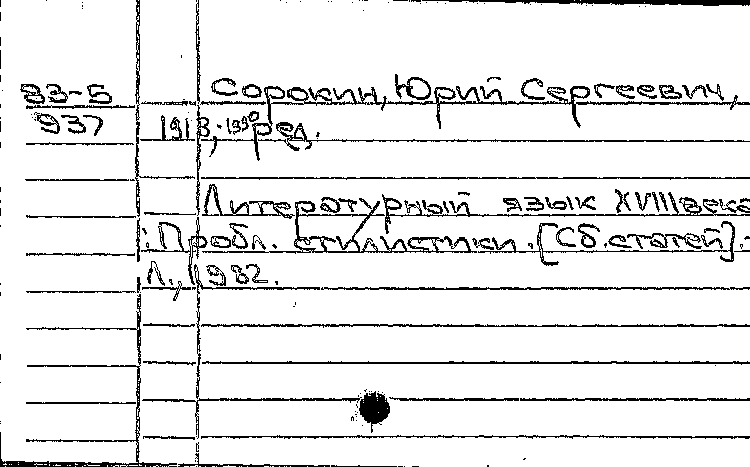 83-5 Сорокин, Юрий Сергеевич,
937 1913-1990 ред.
Литературный язык XVIII века
: Пробл. стилистики. [Сб. статей].-
Л., 1982.